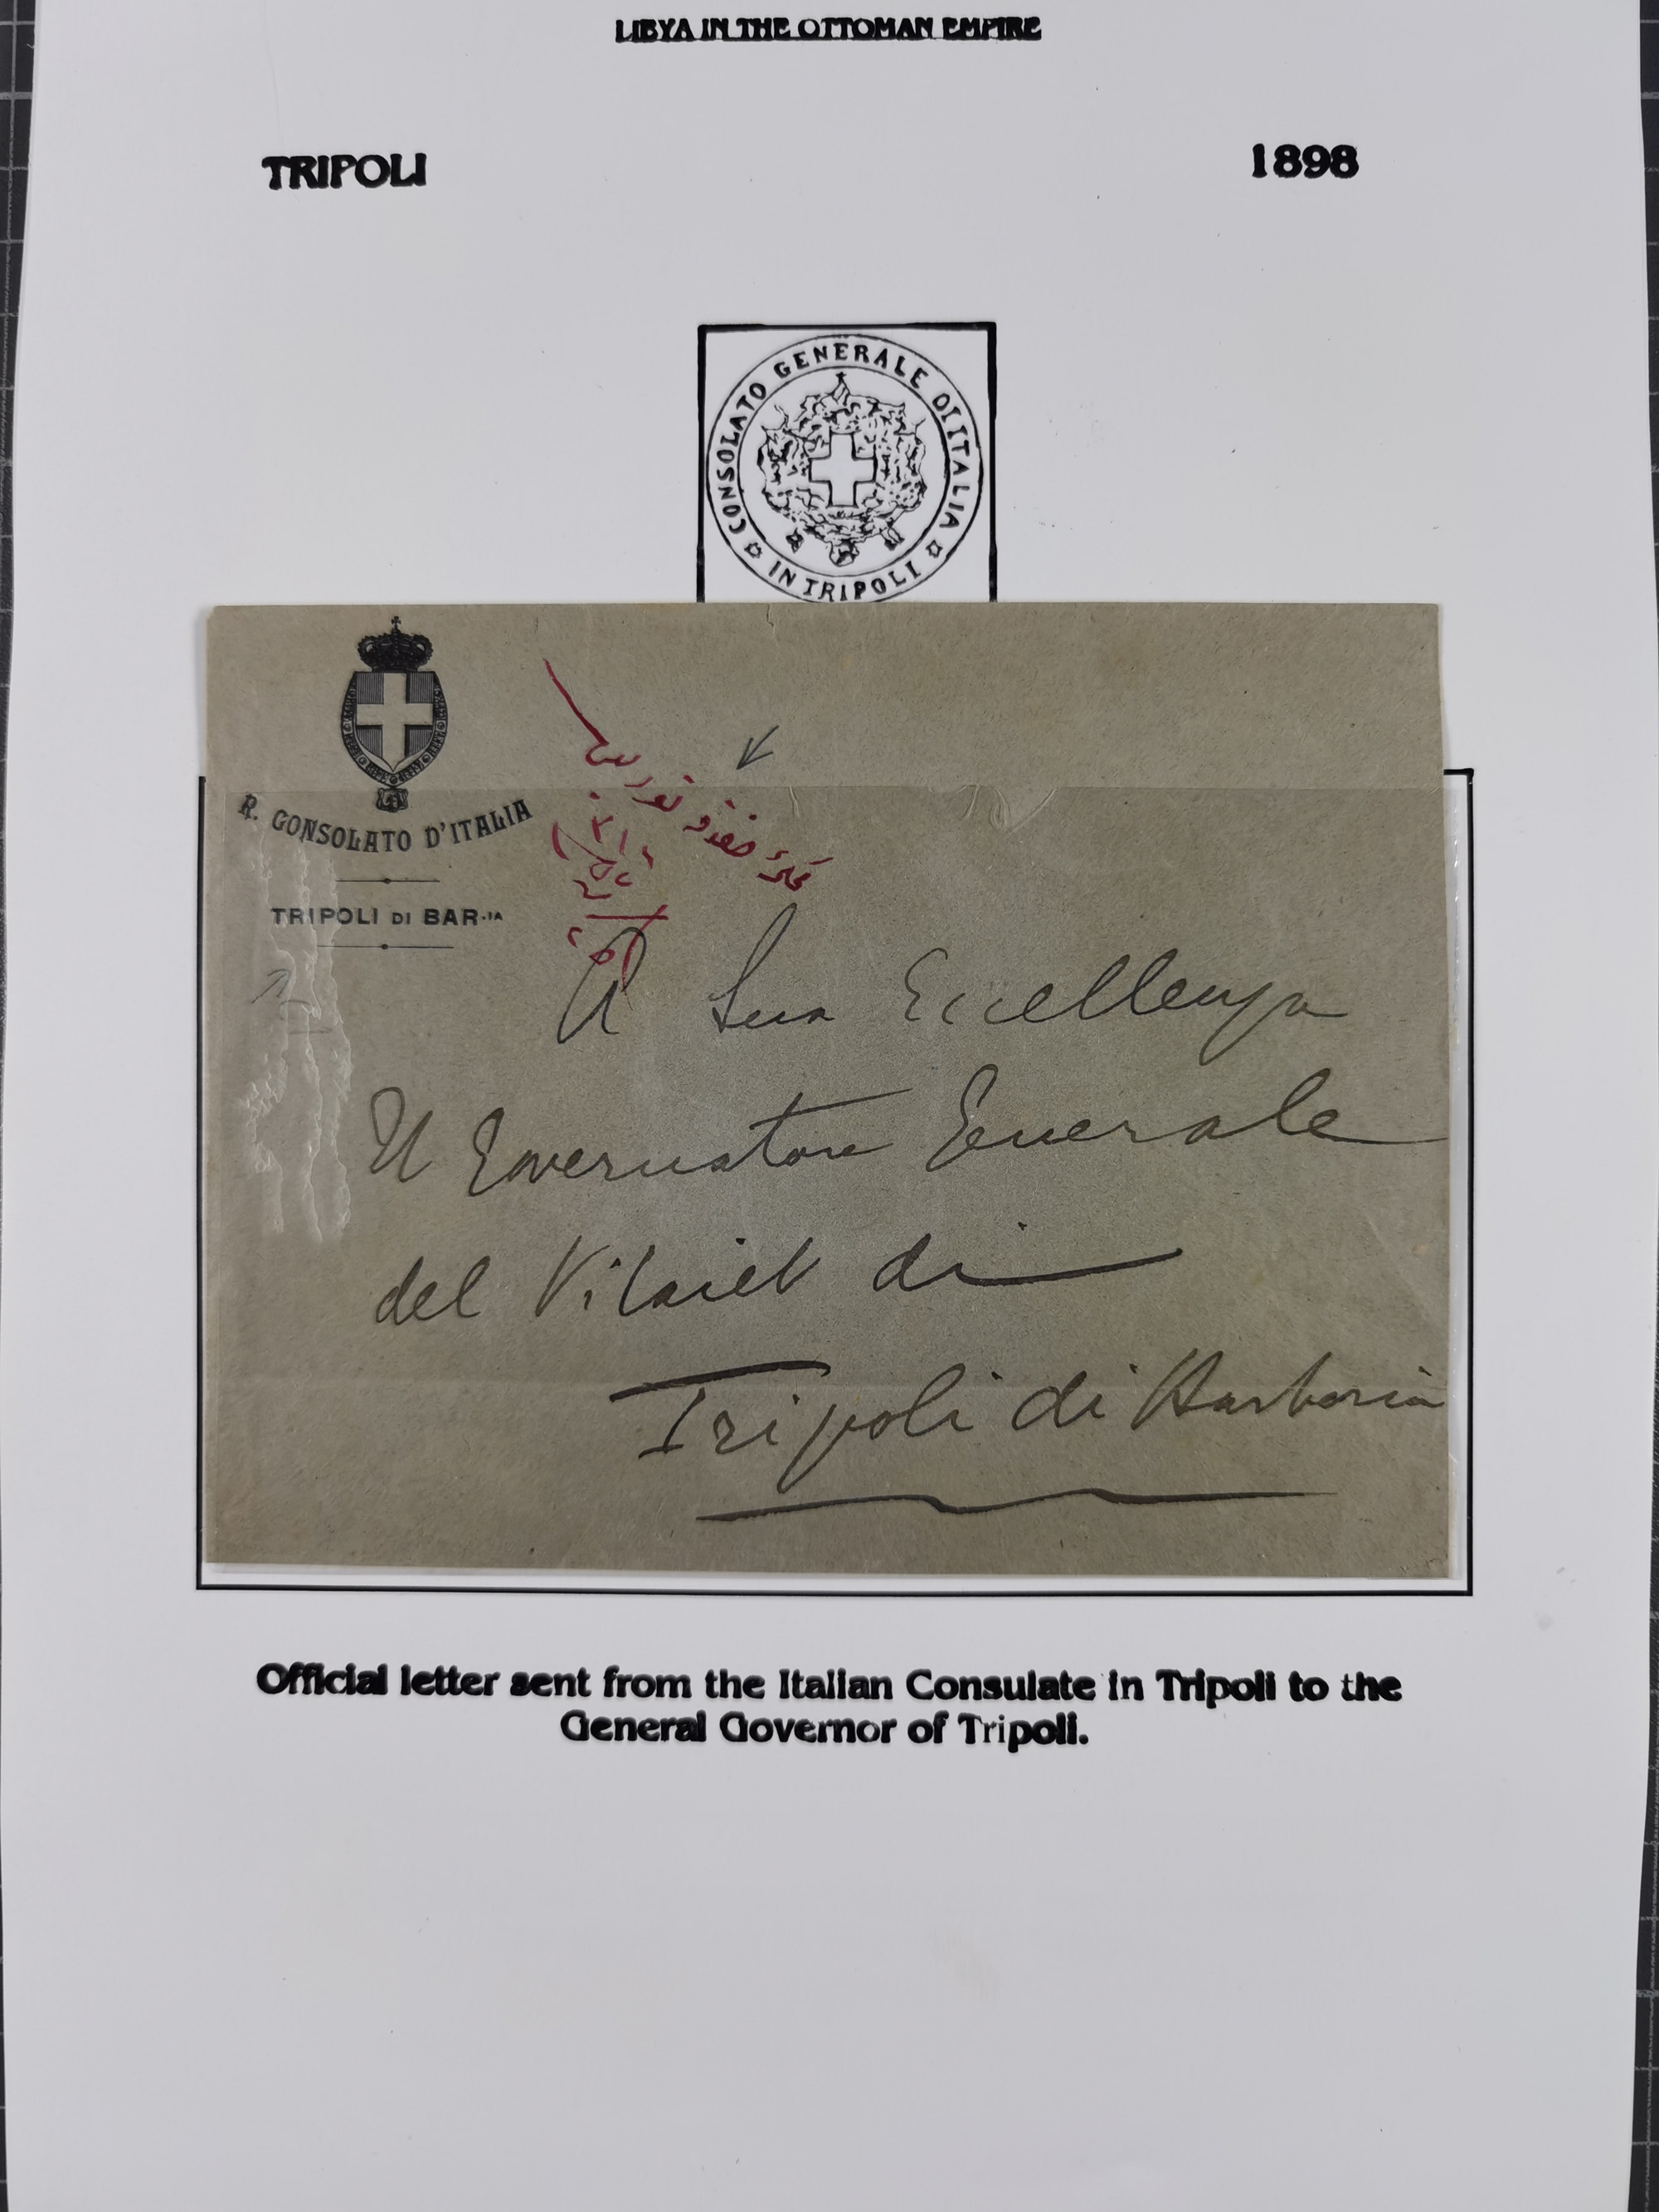 LIBYA IN THE OTTOMAN EMPIRE
TRIPOLI
1898
CONSOLATO GENERALE DI ITALIA
IN TRIPOLI
R. CONSOLATO D'ITALIA
TRIPOLI DI BAR.IA
A Sua Eccellenza
Il Governatore Generale
del Vilaiet di
Tripoli di Barberia
Official letter sent from the Italian Consulate in Tripoli to the
General Governor of Tripoli.